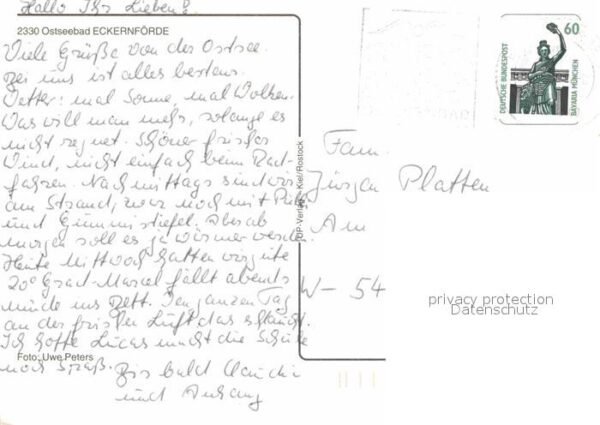 Hallo Ihr Lieben!
2330 Ostseebad ECKERNFÖRDE
Viele Grüße von der Ostsee.
Bei uns ist alles bestens.
Wetter: mal Sonne, mal Wolken.
Was will man mehr, solange es
nicht regnet. Schöner frischer
Wind, nicht einfach beim Rad-
fahren. Nachmittags sind wir
am Strand, zwar noch mit Pulli
und Gummistiefel. Aber ab
morgen soll es ja wärmer werden.
Heute Mittwoch hatten wir gute
20° Grad. Marcel fällt abends
müde ins Bett. Den ganzen Tag
an der frischen Luft das schlaucht.
Ich hoffe Lucas macht die Schule
noch Spaß.
Bis bald Claudia
und Anhang
Foto: Uwe Peters
UP-Verlag · Kiel/Rostock
60
DEUTSCHE BUNDESPOST
BAVARIA MÜNCHEN
Fam.
Jürgen Platten
Am
W-54
privacy protection
Datenschutz